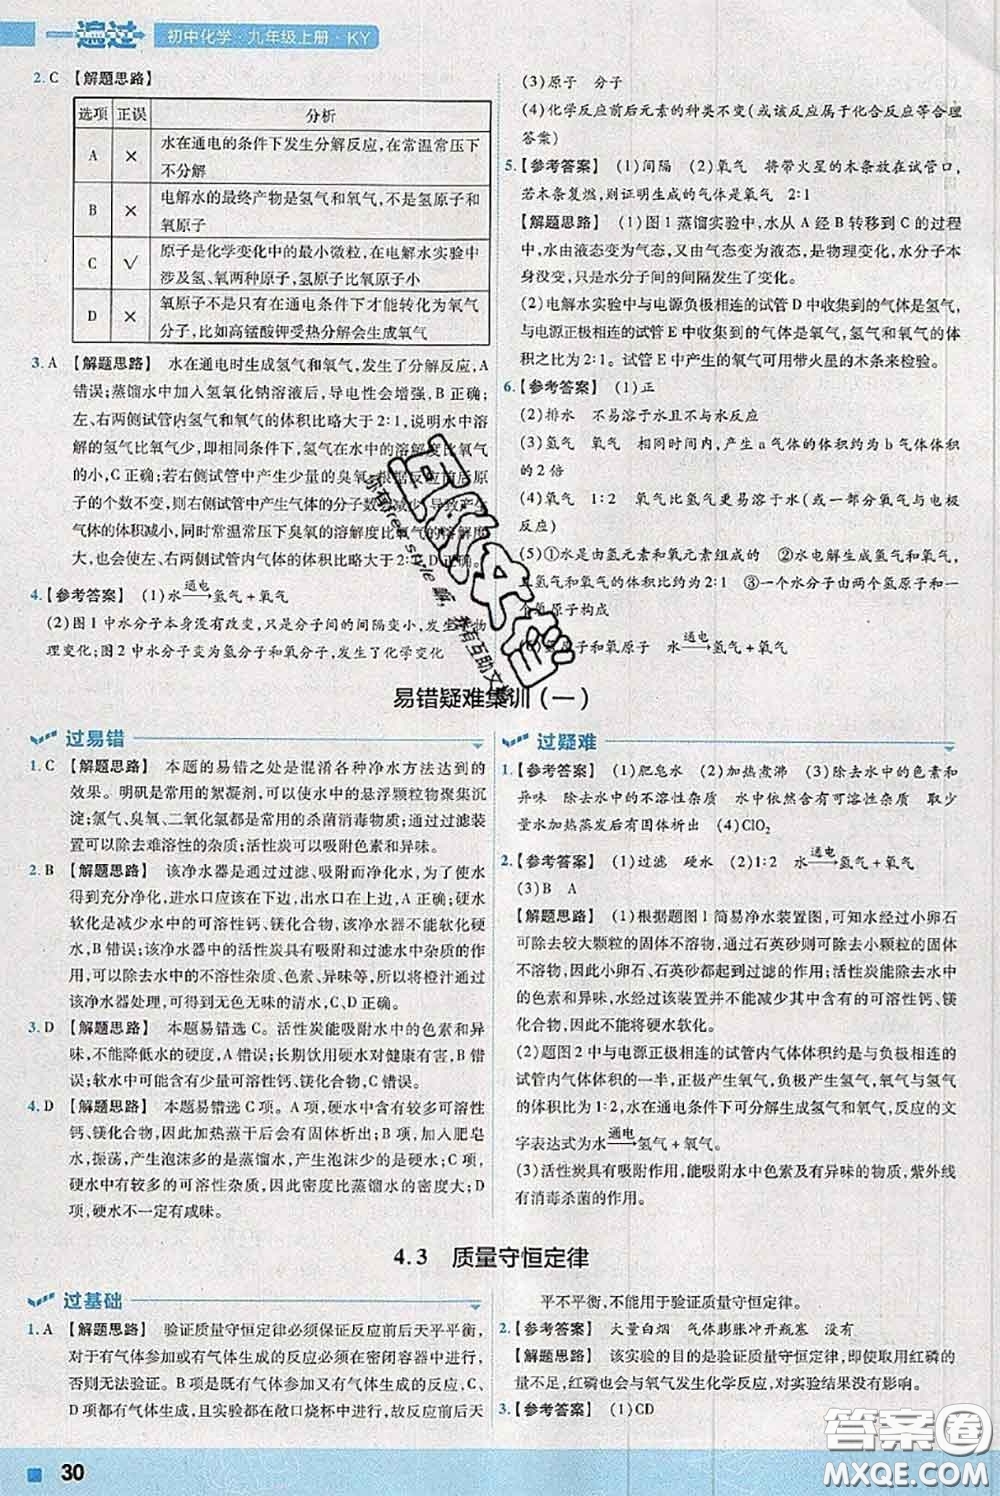 一遍过 初中化学·九年级上册·KY
2. C 【解题思路】
选项 正误 分析
A × 水在通电的条件下发生分解反应,在常温常压下
不分解
B × 电解水的最终产物是氢气和氧气,不是氢原子和
氧原子
C √ 原子是化学变化中的最小微粒,在电解水实验中
涉及氢、氧两种原子,氢原子比氧原子小
D × 氧原子不是只有在通电条件下才能转化为氧气
分子,比如高锰酸钾受热分解会生成氧气
3. A 【解题思路】 水在通电时生成氢气和氧气,发生了分解反应,A
错误;蒸馏水中加入氢氧化钠溶液后,导电性会增强,B 正确;
左、右两侧试管内氢气和氧气的体积比略大于 2∶1,说明水中溶
解的氢气比氧气少,即相同条件下,氢气在水中的溶解度比氧气
的小,C 正确;若右侧试管中产生少量的臭氧,根据反应前后原
子的个数不变,则右侧试管中产生气体的分子数减少,导致产
气体的体积减小,同时常温常压下臭氧的溶解度比氧气的溶解度
大,也会使左、右两侧试管内气体的体积比略大于 2∶1,D 正确。
4. 【参考答案】 (1)水 通电→ 氢气+氧气
(2)图 1 中水分子本身没有改变,只是分子间的间隔变小,发生了物
理变化;图 2 中水分子变为氢分子和氧分子,发生了化学变化
(3)原子 分子
(4)化学反应前后元素的种类不变(或该反应属于化合反应等合理
答案)
5. 【参考答案】 (1)间隔 (2)氧气 将带火星的木条放在试管口,
若木条复燃,则证明生成的气体是氧气 2∶1
【解题思路】 (1)图 1 蒸馏实验中,水从 A 经 B 转移到 C 的过程
中,水由液态变为气态,又由气态变为液态,是物理变化,水分子本
身没变,只是水分子间的间隔发生了变化。
(2)电解水实验中与电源负极相连的试管 D 中收集到的气体是氢气,
与电源正极相连的试管 E 中收集到的气体是氧气,氢气和氧气的体
积之比为 2∶1。试管 E 中产生的氧气可用带火星的木条来检验。
6. 【参考答案】 (1)正
(2)排水 不易溶于水且不与水反应
(3)氢气 氧气 相同时间内,产生 a 气体的体积约为 b 气体体积
的 2 倍
(4)氧气 1∶2 氧气比氢气更易溶于水(或一部分氧气与电极
反应)
(5)①水由氢元素和氧元素组成的 ②水电解生成氢气和氧气,
且氢气和氧气的体积比约为 2∶1 ③一个水分子由两个氢原子和一
个氧原子构成
(6)氢原子和氧原子 水 通电→ 氢气+氧气
易错疑难集训(一)
过易错
1. C 【解题思路】 本题的易错之处是混淆各种净水方法达到的
效果。明矾是常用的絮凝剂,可以使水中的悬浮颗粒物聚集沉
淀;氯气、臭氧、二氧化氯都是常用的杀菌消毒物质;通过过滤装
置可以除去难溶性的杂质;活性炭可以吸附色素和异味。
2. B 【解题思路】 该净水器是通过过滤、吸附而净化水,为了使水
得到充分净化,进水口应该在下边,出水口在上边,A 正确;硬水
软化是减少水中的可溶性钙、镁化合物,该净水器不能软化硬
水,B 错误;该净水器中的活性炭具有吸附和过滤水中杂质的作
用,可以除去水中的不溶性杂质、色素、异味等,可以将橙汁通过
该净水器处理,可得到无色无味的清水,C、D 正确。
3. D 【解题思路】 本题易错选 C。活性炭能吸附水中的色素和异
味,不能降低水的硬度,A 错误;长期饮用硬水对健康有害,B 错
误;软水中可能只含有较少可溶性钙、镁化合物,C 错误。
4. D 【解题思路】 本题易错选 C 项。A 项,硬水中含有较多可溶性
钙、镁化合物,因此加热蒸干后会有固体析出;B 项,加入肥皂
水,振荡,产生泡沫多的是蒸馏水,产生泡沫少的是硬水;C 项,硬
水中含有较多的可溶性杂质,因此密度比蒸馏水的密度大;D
项,硬水不一定有咸味。
过疑难
1. 【参考答案】 (1)肥皂水 (2)加热煮沸 (3)除去水中的色素和
异味 除去水中的不溶性杂质 水中依然含有可溶性杂质 取少
量水加热蒸发后有固体析出 (4)ClO₂
2. 【参考答案】 (1)过滤 硬水 (2)1∶2 水 通电→ 氢气+氧气
(3)B A
【解题思路】 (1)根据题图 1 简易净水装置图,可知水经过小卵石
可除去较大颗粒的固体不溶物,通过石英砂可除去小颗粒的固体
不溶物,因此小卵石、石英砂都起到过滤的作用;活性炭能除去水中
的色素和异味,水经过该装置并不能减少其中的可溶性钙、镁
化合物,因此不能将硬水软化。
(2)题图 2 中与电源正极相连的试管内气体体积约是与负极相连的
试管内气体体积的一半,正极产生氧气,负极产生氢气,氧气与氢气
的体积比约为 1∶2,水在通电条件下可分解生成氢气和氧气,反应的文
字表达式为水 通电→ 氢气+氧气。
(3)活性炭具有吸附作用,能吸附水中色素及有异味的物质,紫外线
有消毒杀菌的作用。
4.3 质量守恒定律
过基础
1. A 【解题思路】 验证质量守恒定律必须保证反应前后天平平衡,
对于有气体参加或有气体生成的反应必须在密闭容器中进行,
否则无法验证。B 项有气体参加反应,但没有气体生成的反应,C、
D 项都有气体生成,但实验在敞口烧杯中进行,故反应前后天
平不平衡,不能用于验证质量守恒定律。
2. 【参考答案】 大量白烟 气体膨胀冲开瓶塞 没有
【解题思路】 该实验的目的是验证质量守恒定律,即使取用红磷的
量不足,红磷也会与氧气发生化学反应,对实验结果没有影响。
3. 【参考答案】 (1)CD
30
答案圈
MXQE.COM